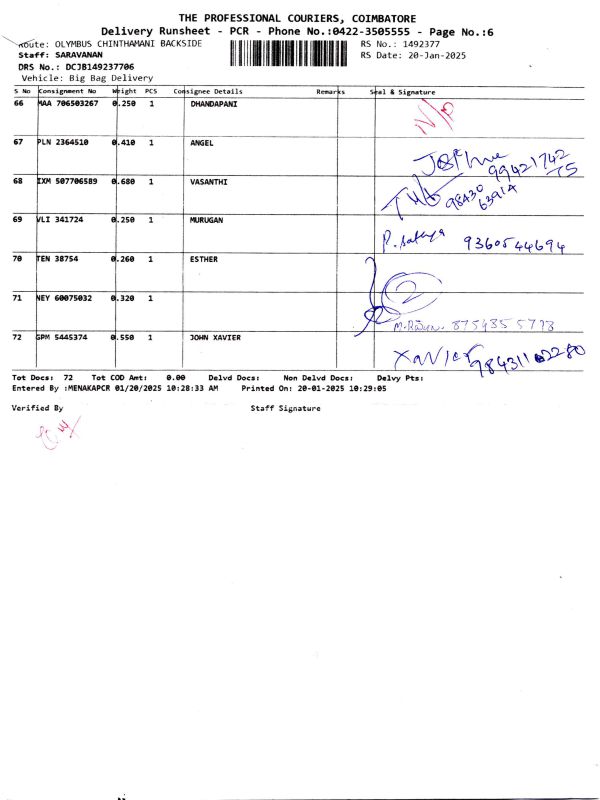 THE PROFESSIONAL COURIERS, COIMBATORE
Delivery Runsheet - PCR - Phone No.:0422-3505555 - Page No.:6
Route: OLYMBUS CHINTHAMANI BACKSIDE RS No.: 1492377
Staff: SARAVANAN RS Date: 20-Jan-2025
DRS No.: DCJB149237706
Vehicle: Big Bag Delivery
S No Consignment No Weight PCS Consignee Details Remarks Seal & Signature
66 MAA 706503267 0.250 1 DHANDAPANI
67 PLN 2364510 0.410 1 ANGEL
99421742
75
68 IXM 507706589 0.680 1 VASANTHI
98430
63914
69 VLI 341724 0.250 1 MURUGAN
9360544694
70 TEN 38754 0.260 1 ESTHER
2
71 NEY 60075032 0.320 1
72 GPM 5445374 0.550 1 JOHN XAVIER
Xavier
Tot Docs: 72 Tot COD Amt: 0.00 Delvd Docs: Non Delvd Docs: Delvy Pts:
Entered By :MENAKAPCR 01/20/2025 10:28:33 AM Printed On: 20-01-2025 10:29:05
Verified By Staff Signature